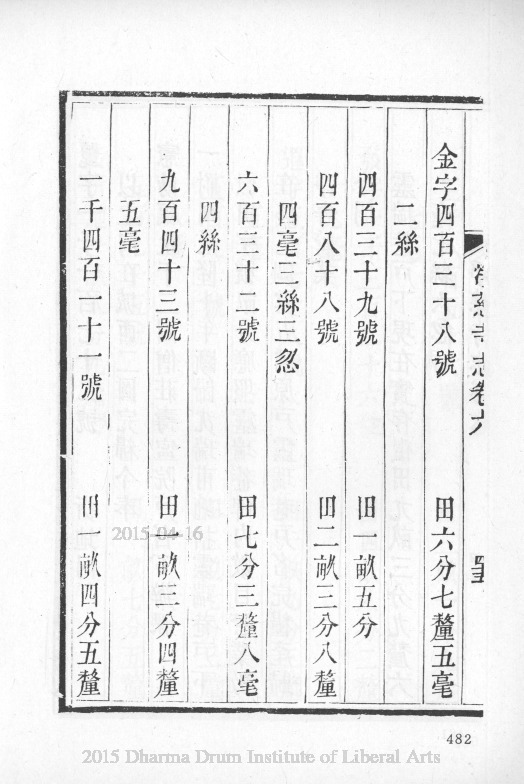 慈寺志卷六
金字四百三十八號 田六分七釐五毫
二絲
四百三十九號 田一畝五分
四百八十八號 田二畝三分八釐
四毫三絲三忽
六百三十二號 田七分三釐八毫
四絲
九百四十三號 田一畝三分四釐
五毫
一千四百一十一號 田一畝四分五釐
2015-04-16
482
2015 Dharma Drum Institute of Liberal Arts